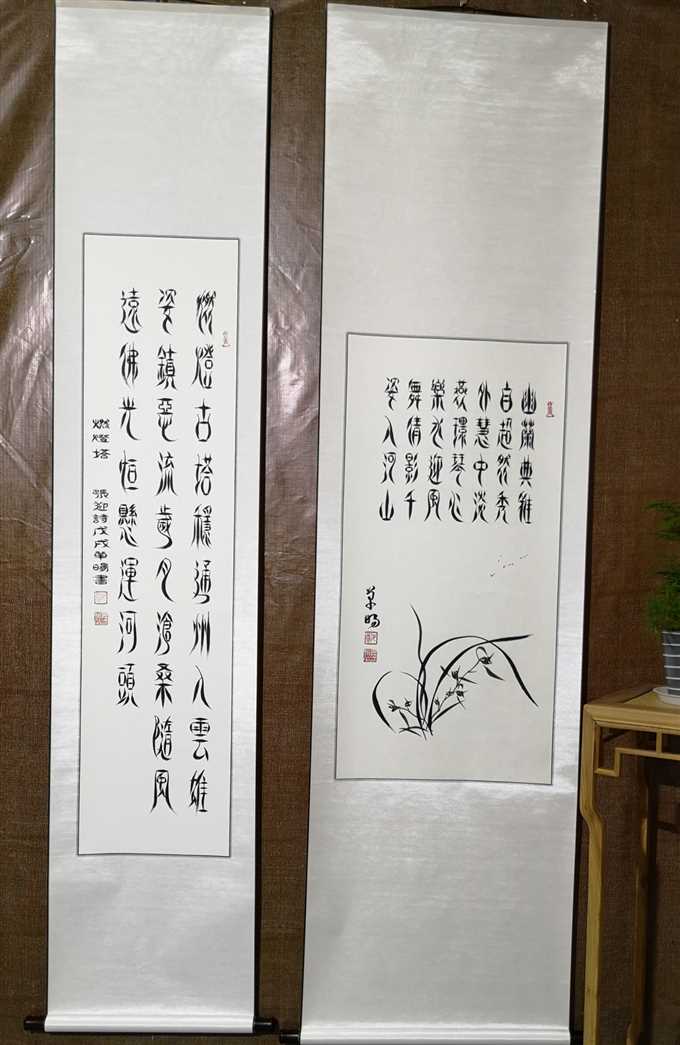 燃燈古塔穩通州入雲雄
姿鎮惡流歲月滄桑隨風
遠佛光恒懸運河頭
燃燈塔 張迎詩戊戌草暘書
幽蘭典雅
自超然秀
外慧中淡
燕環琴心
樂水迎風
舞倩影千
姿入河山
草暘